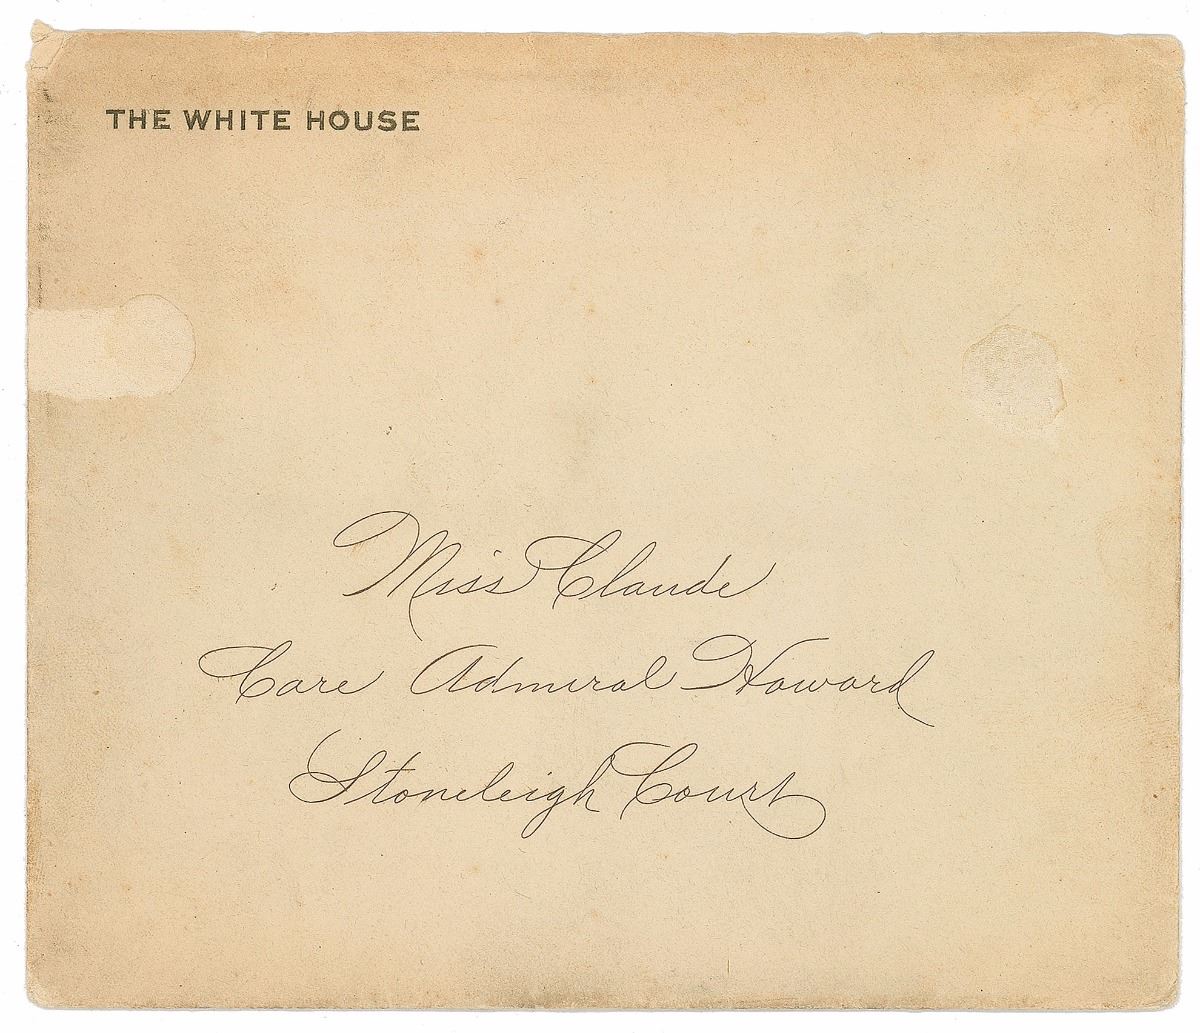 THE WHITE HOUSE
Miss Claude
Care Admiral Howard
Stoneleigh Court